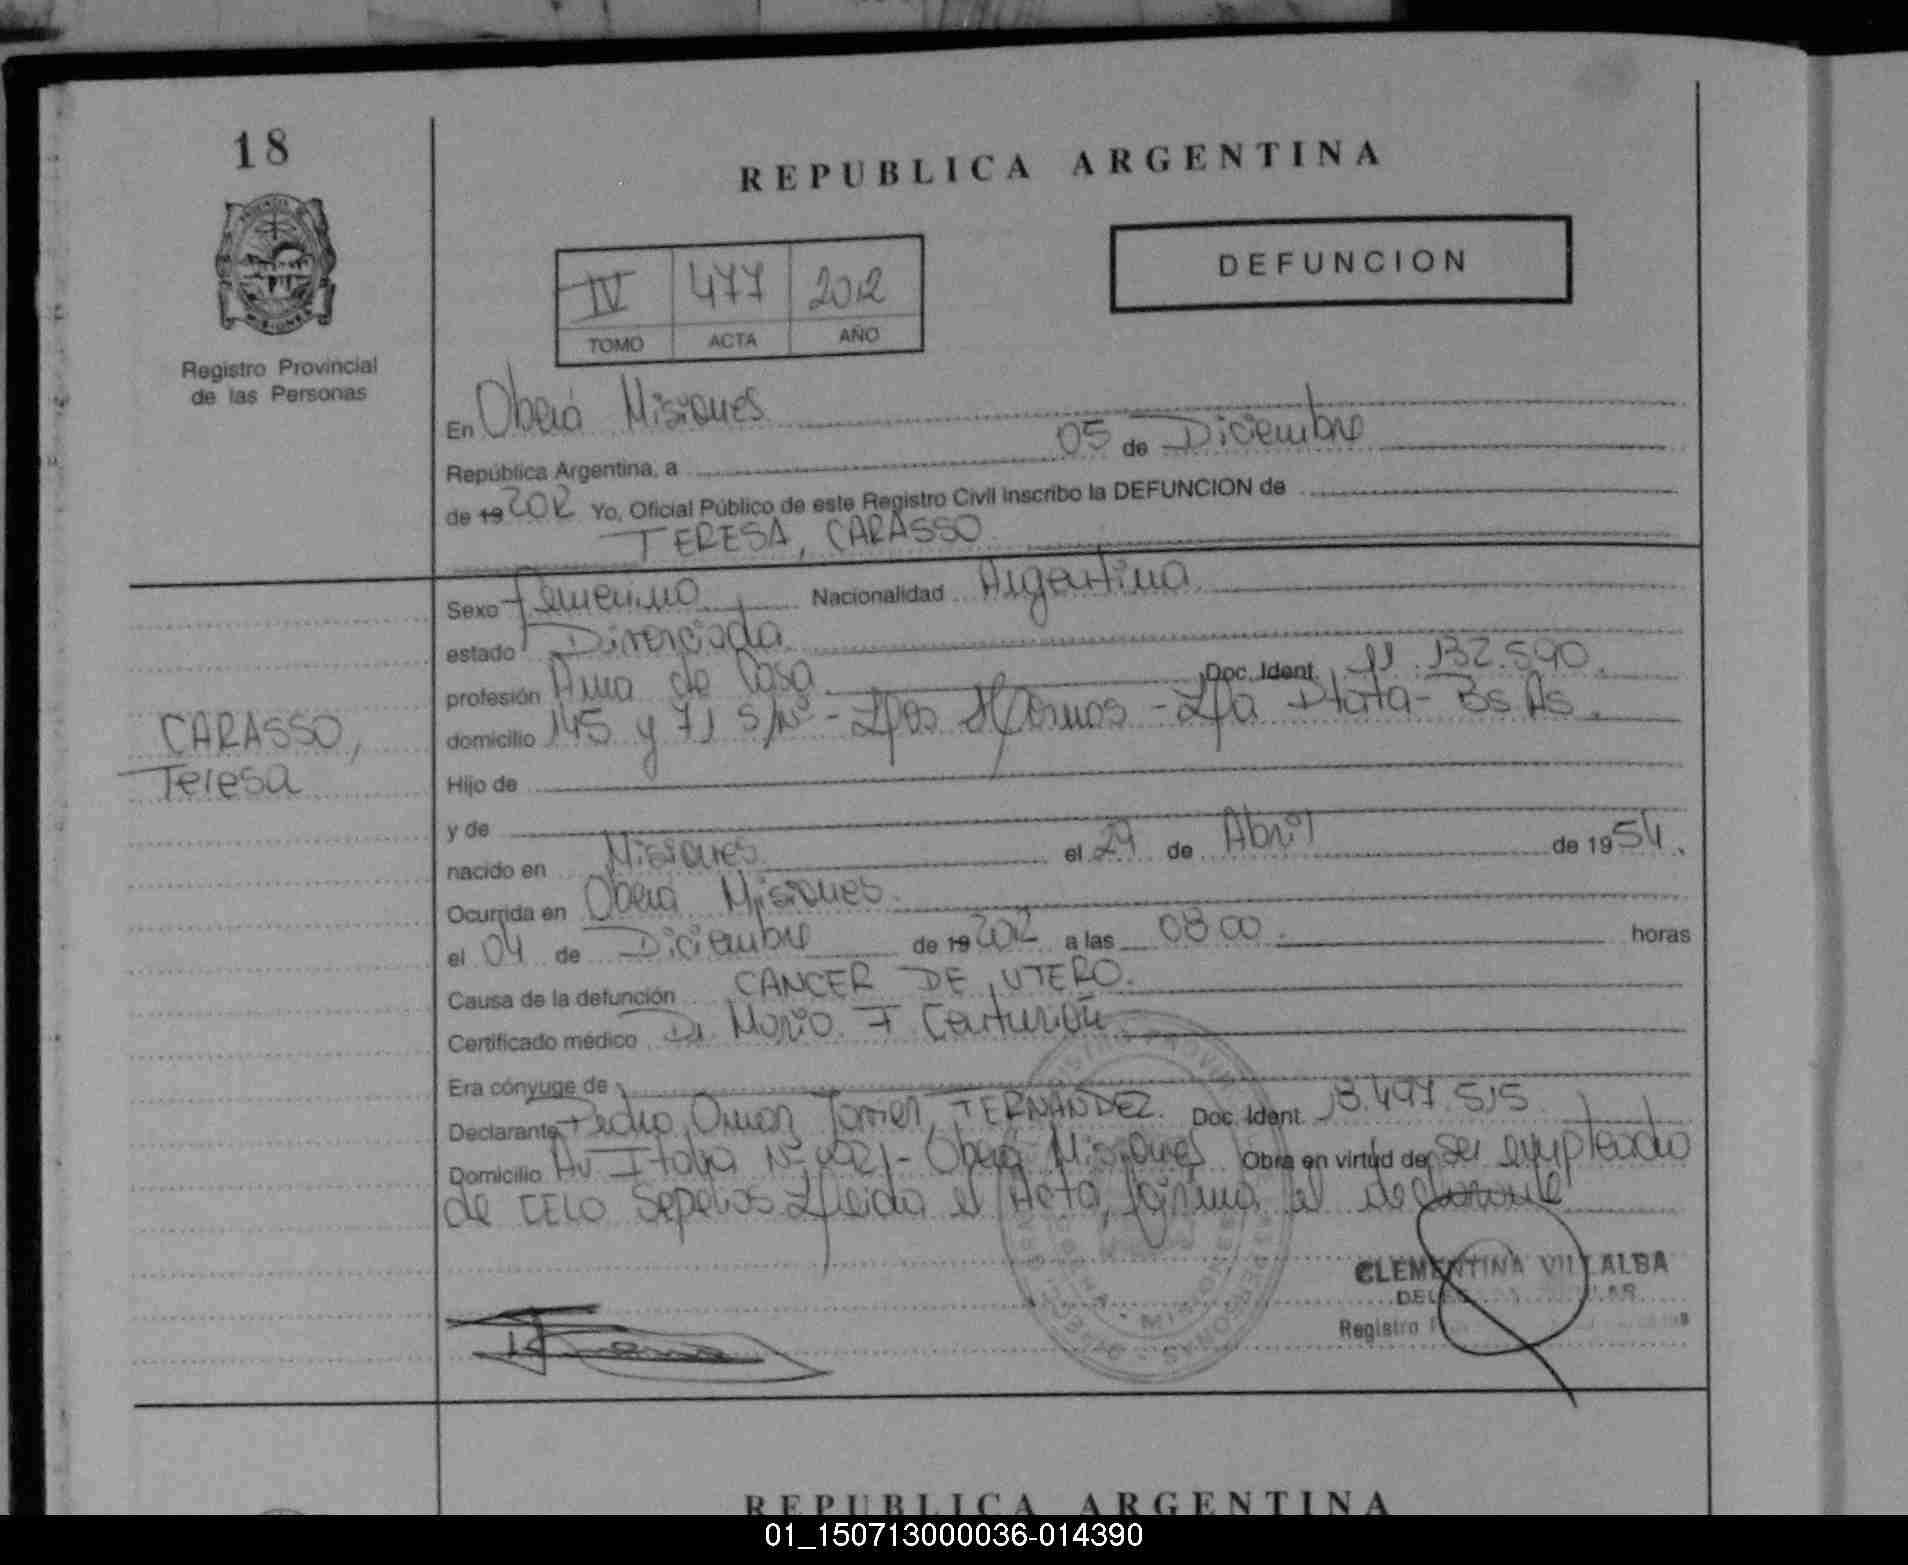 18
REPUBLICA ARGENTINA
DEFUNCION
IV 477 2012
TOMO ACTA AÑO
Registro Provincial
de las Personas
En Oberá Misiones
República Argentina, a 05 de Diciembre
de 19 2012 Yo, Oficial Público de este Registro Civil inscribo la DEFUNCION de
TERESA, CARASSO
Sexo femenino Nacionalidad Argentina
estado Divorciada
profesión Ama de Casa Doc. Ident. 11.132.590.
domicilio 145 y 71 S/Nº - Los Hornos - La Plata - Bs As.
CARASSO,
Teresa
Hijo de
y de
nacido en Misiones el 29 de Abril de 1954.
Ocurrida en Oberá Misiones.
el 04 de Diciembre de 19 2012 a las 08 00. horas
Causa de la defunción CANCER DE UTERO.
Certificado médico Dr Mario F Centurión
Era cónyuge de
Declarante Pedro Omar Javier, FERNANDEZ. Doc. Ident. 18.497.515
Domicilio Av Italia Nº - Oberá Misiones Obra en virtud de ser empleado
de CELO Sepelios Leida el Acta, firma el declarante
CLEMENTINA VILLALBA
Registro
MISIONES
REPUBLICA ARGENTINA
01_150713000036-014390